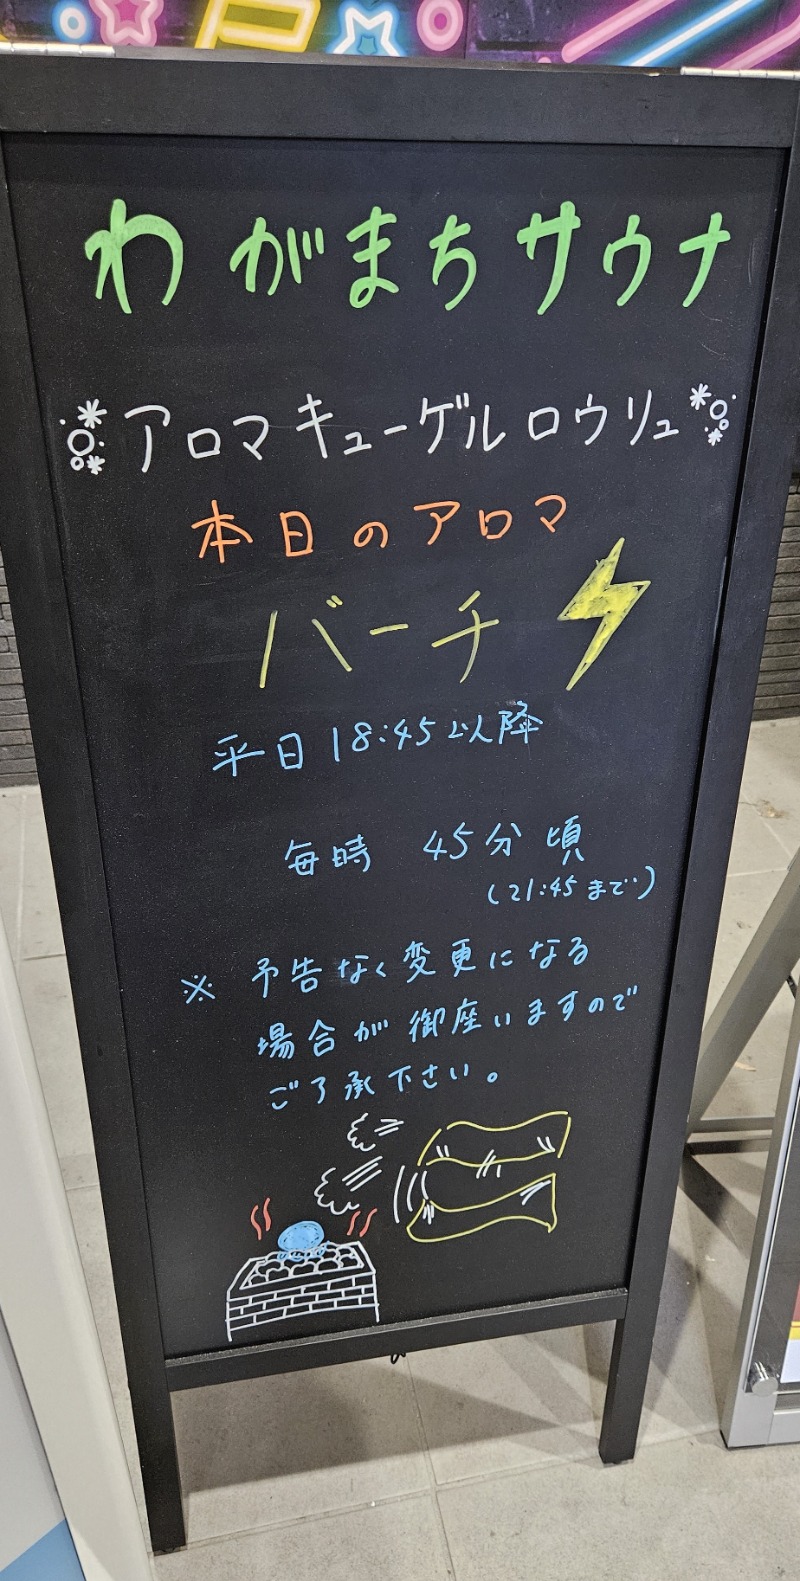 わがまちサウナ
アロマキューゲルロウリュ
本日のアロマ
バーチ
平日18:45以降
毎時 45分頃
(21:45まで)
※ 予告なく変更になる
場合が御座いますので
ご了承下さい。